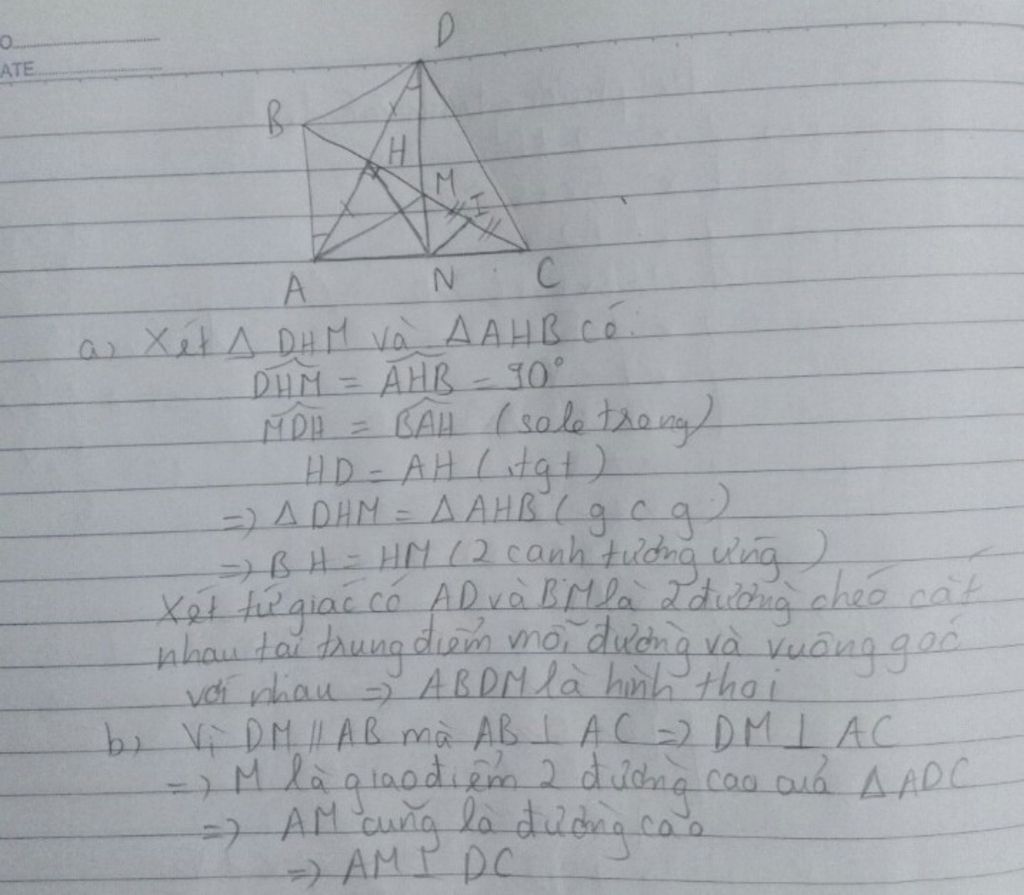 O
ATE
D
B
H
M
I
A
N
C
a, Xét Δ DHM và ΔAHB có:
DHM = AHB = 90°
MDH = BAH (sole trong)
HD = AH (tgt)
=) Δ DHM = ΔAHB (g c g)
=) BH = HM (2 cạnh tương ứng)
Xét tứ giác có AD và BM là 2 đường chéo cắt
nhau tại trung điểm mỗi đường và vuông góc
với nhau =) ABDM là hình thoi
b, Vì DM // AB mà AB ⊥ AC =) DM ⊥ AC
=) M là giao điểm 2 đường cao của ΔADC
=) AM cũng là đường cao
=) AM ⊥ DC